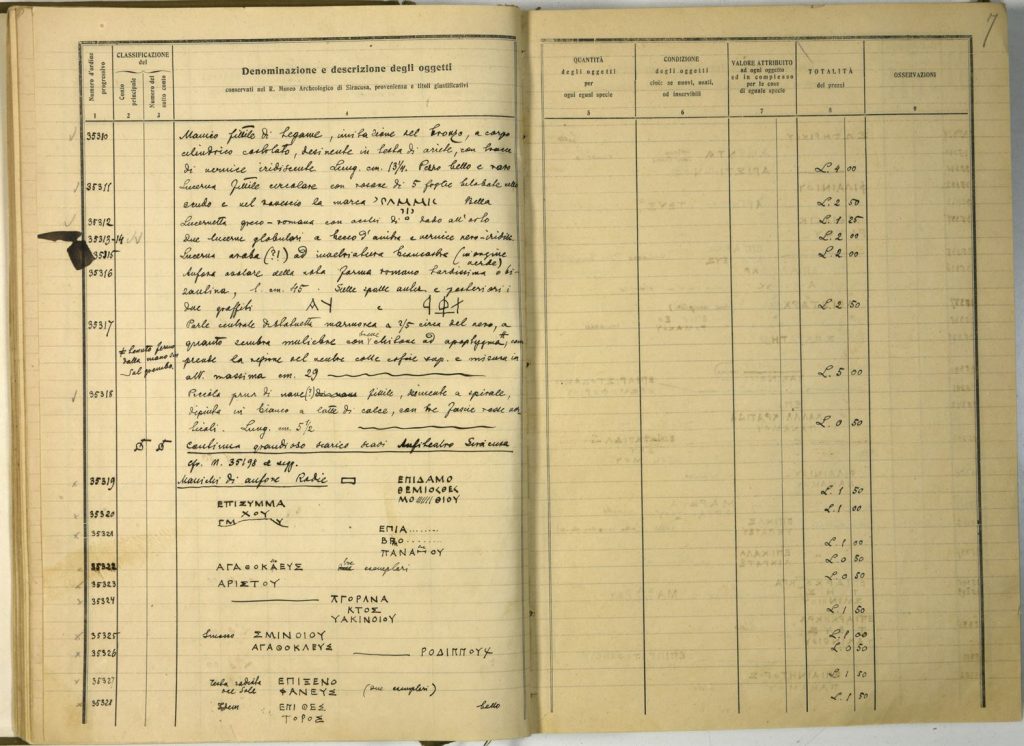 7
Numero d'ordine progressivo
CLASSIFICAZIONE
del
Conto principale
Numero del sotto conto
Denominazione e descrizione degli oggetti
conservati nel R. Museo Archeologico di Siracusa, provenienza e titoli giustificativi
QUANTITÀ
degli oggetti
per
ogni egual specie
CONDIZIONE
degli oggetti
cioè: se nuovi, usati,
od inservibili
VALORE ATTRIBUITO
ad ogni oggetto
ed in complesso
per le cose
di eguale specie
TOTALITÀ
dei prezzi
OSSERVAZIONI
1 2 3 4 5 6 7 8 9
35310 Manico fittile di legame, imitazione del bronzo, a corpo
cilindrico, desinente in testa di ariete, con tracce
di vernice iridiscente. Lung. cm. 13¼. Pezzo bello e raro L. 4 00
35311 Lucerna fittile circolare con rosone di 5 foglie bilobate nello
scudo e nel rovescio la marca Bella L. 2 50
35312 Lucernetta greco-romana con occhi di dado all'orlo L. 1 25
35313-14 due lucerne globulari a becco d'ancora e vernice nero-iridisc. L. 2 00
35315 Lucerna araba (?!) ad invetriatura biancastra (in origine
verde) L. 2 00
35316 Anfora ovolare della nota forma romano tardissima o bi-
zantina, l. cm. 45. Sulle spalle anter. e posteriori i
due graffiti ΑΥ e L. 2 50
35317 Parte centrale di statuetta marmorea a 2/5 circa del vero, a
quanto sembra muliebre con chitone ad apoptygma*, com
prende la regione del ventre colle cosce sup. e misura in
alt. massima cm. 29 L. 5 00
* tenuto fermo
dalla mano sin
sul grembo.
35318 Piccola prua di nave (?) fittile, desinente a spirale,
dipinta in bianco a latte di calce, con tre fasce rosse ver
ticali. Lung. cm. 5½ L. 0 50
Continua grandioso scarico scavi Anfiteatro Siracusa
cfr. N. 35198 e segg.
35319 Manichi di anfore Rodie ΕΠΙΔΑΜΟ
ΘΕΜΙΣΘΕΣ
ΜΟ ΘΙΟΥ L. 1 50
35320 ΕΠΙΣΥΜΜΑ
ΧΟΥ L. 1 00
35321 ΕΠΙΑ........
ΒΡΟ........
ΠΑΝΑΜΟΥ L. 1 00
35322 ΑΓΑΘΟΚΛΕΥΣ due esemplari L. 0 50
35323 ΑΡΙΣΤΟΥ L. 0 50
35324 ΑΓΟΡΑΝΑ
ΚΤΟΣ
ΥΑΚΙΝΟΙΟΥ L. 1 50
35325 ΣΜΙΝΟΙΟΥ L. 1 00
35326 ΑΓΑΘΟΚΛΕΥΣ ΡΟΔΙΠΠΟΥ L. 0 50
35327 testa radiata
del Sole ΕΠΙΞΕΝΟ
ΦΑΝΕΥΣ (due esemplari) L. 1 50
35328 ΕΠΙΘΕΣ
ΤΟΡΟΣ bello L. 1 50